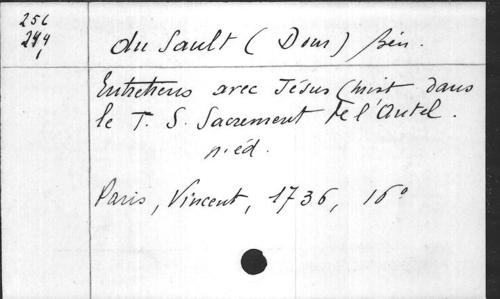 256
244
1
du Sault (Dom) bén.
Entretiens avec Jésus Christ dans
le T. S. Sacrement de l'Autel.
n. éd.
Paris, Vincent, 1736, 16°